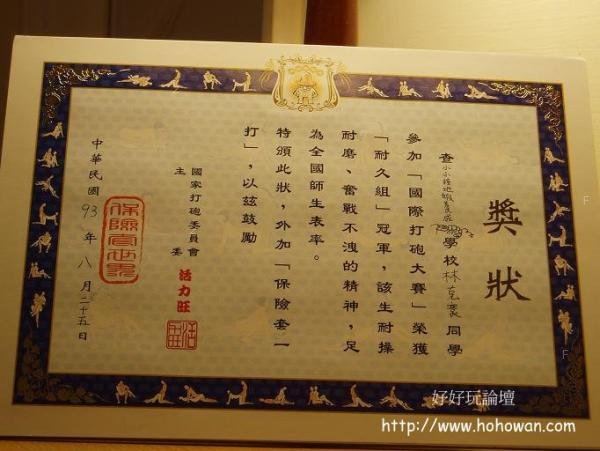 獎狀
查小小種地蝦養成學校林克襄同學
參加「國際打砲大賽」榮獲
「耐久組」冠軍，該生耐操
耐磨、奮戰不洩的精神，足
為全國師生表率。
特頒此狀，外加「保險套一
打」，以茲鼓勵
國家打砲委員會
主委 活力旺
保險套世界
中華民國93年八月二十五日
好好玩論壇
http://www.hohowan.com